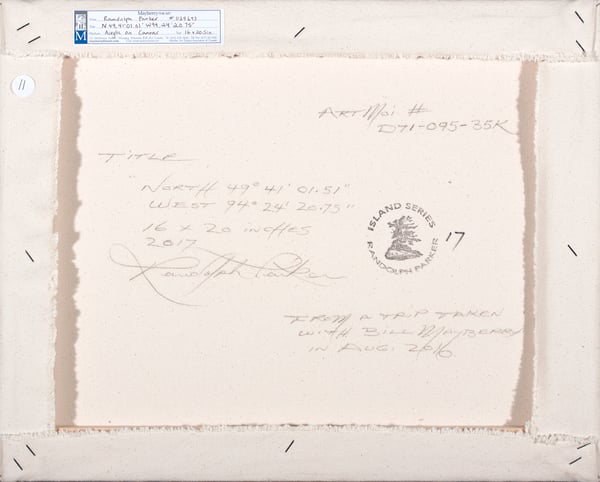 Mayberry
Randolph Parker
N 49,41'01.51" W94,24'20.75"
Acrylic on Canvas 16 x 20.5in
M
11
ARTMOi #
D71-095-35K
TITLE
"NORTH 49° 41' 01.51"
WEST 94° 24' 20.75"
16 x 20 inches
2017
Randolph Parker
ISLAND SERIES
RANDOLPH PARKER
17
FROM A TRIP TAKEN
WITH BILL MAYBERRY
IN AUG. 2016.